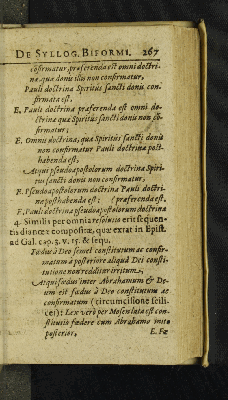 DE SYLLOG. BIFORMI. 267
confirmatur, præferenda est omni doctri-
næ qua donis illis non confirmatur,
Pauli doctrina Spiritus sancti donis con-
firmata est,
E. Pauli doctrina præferenda est omni do-
ctrinæ qua Spiritus sancti donis non co-
firmatur;
E. Omni doctrina, qua Spiritus sancti donis
non confirmatur Pauli doctrina post-
habenda est,
Atqui pseudoapostolorum doctrina Spiri-
tus sancti donis non confirmatur;
E. Pseudoapostolorum doctrina Pauli doctri-
ne posthabenda est: (præferenda est,
F. Pauli doctrina pseudoapostolorum doctrina
2. Similis per omnia resolutio erit sequen-
tis dianœæ compositæ, quæ extat in Epist.
ad Gal. cap. 3. v. 15. & sequ.
Fœdus à Deo semel constitutum ac confir-
matum à posteriore aliqua Dei consti-
tutione non redditur irritum,
Atqui fœdus inter Abrahamum & De-
um eit fœdus à Deo constitutum ac
confirmatum (circumcisione scili-
cet): Lex verò per Mosen lata est con-
stitutio fœdere cum Abrahamo inito
posterior,
E. Fœ